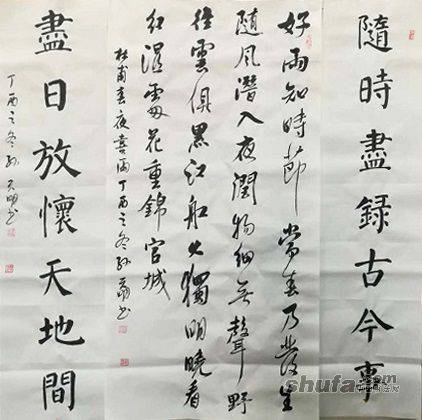 隨時盡録古今事
好雨知時節當春乃發生
隨風潛入夜潤物細無聲野
徑雲俱黑江船火獨明曉看
紅濕處花重錦官城
杜甫春夜喜雨丁酉之冬孫書
盡日放懷天地間
丁酉之冬孫天明书
shufa